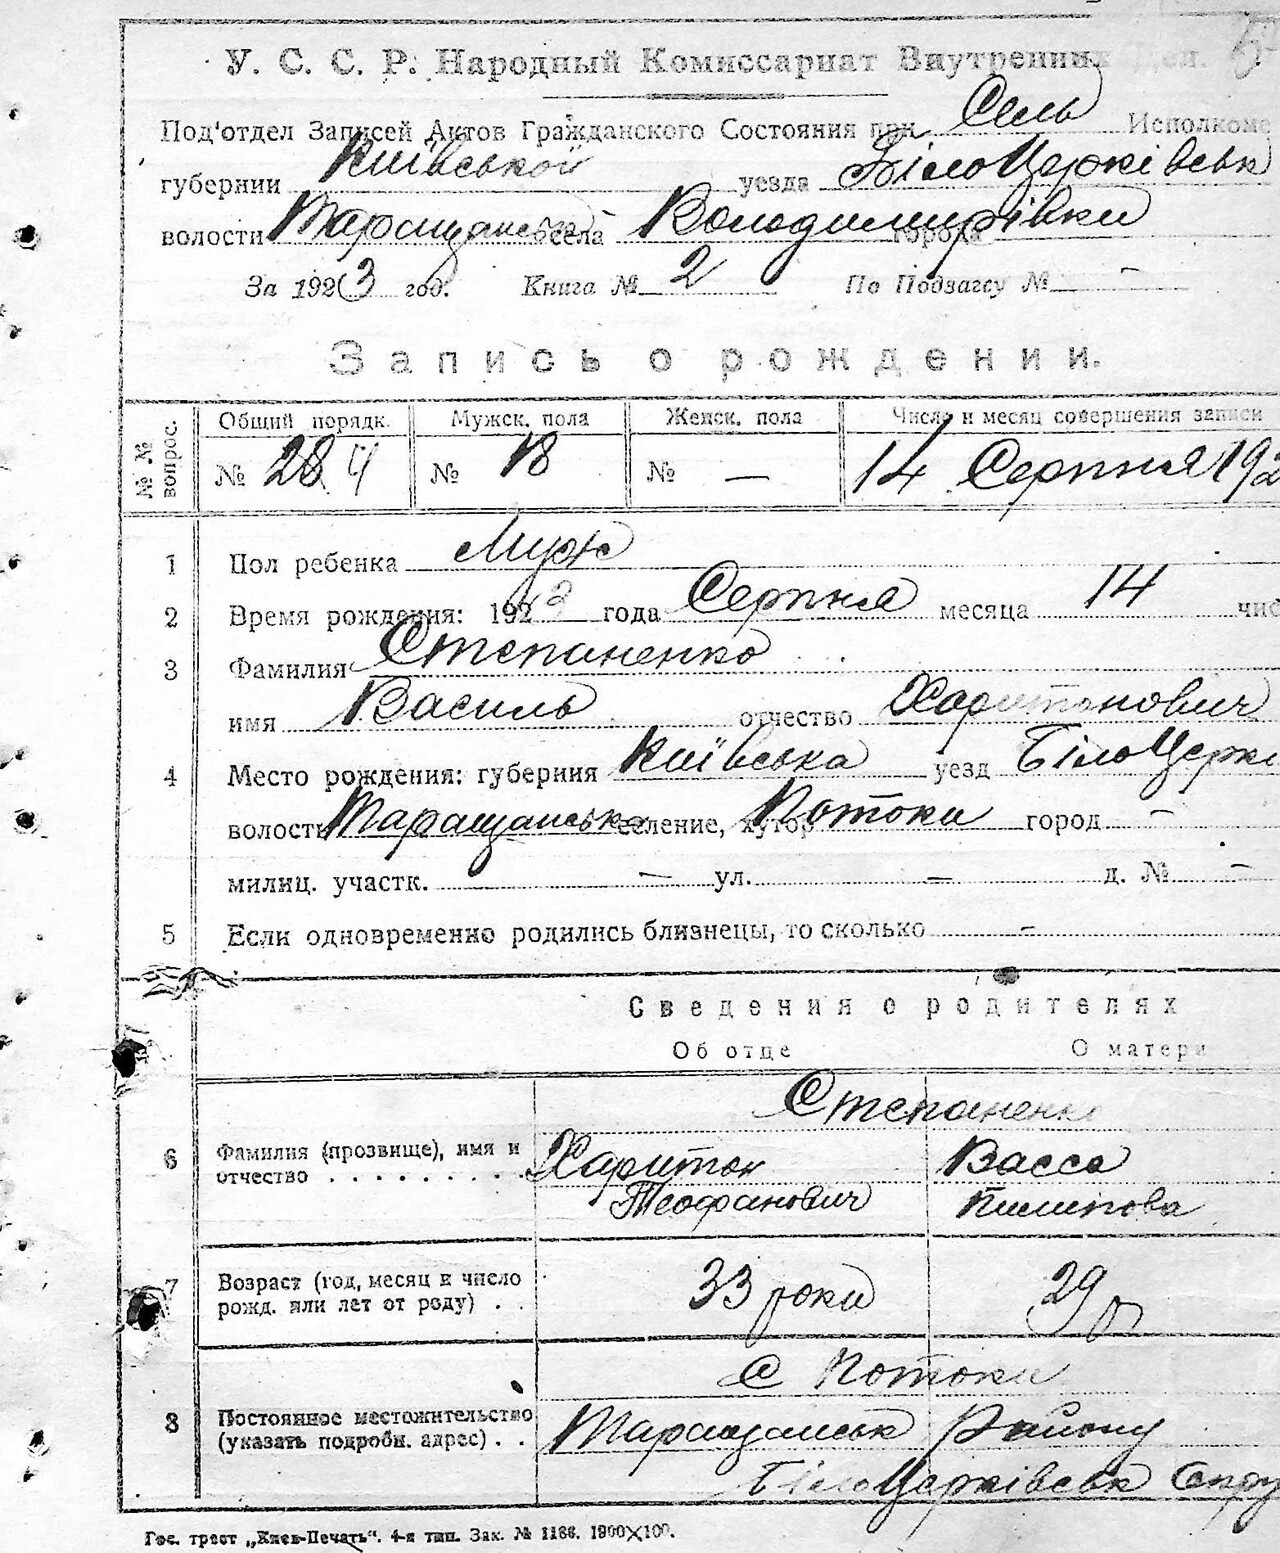 У. С. С. Р. Народный Комиссариат Внутренних Дел.
Под'отдел Записей Актов Гражданского Состояния при Сель Исполкоме
губернии Київської уезда БілоЦерківськ
волости Таращанськ села Володимирівки города
За 1923 год. Книга № 2 По Подзагсу № -
Запись о рождении.
№ № вопрос. Общий порядк. Мужск. пола Женск. пола Число и месяц совершения записи
№ 28 4 № 18 № — 14 Серпня 192
1 Пол ребенка Муж
2 Время рождения: 1923 года Серпня месяца 14 чис
3 Фамилия Степаненко
имя Василь отчество Харитонович
4 Место рождения: губерния Київська уезд БілоЦеркі
волость Таращанська селение, хутор Потоки город -
милиц. участк. — ул. — д. № -
5 Если одновременно родились близнецы, то сколько -
Сведения о родителях
Об отце О матери
Степаненк
6 Фамилия (прозвище), имя и отчество Харитон Васса
Теофанович Пилипова
7 Возраст (год, месяц и число 33 роки 29 р
рожд. или лет от роду)
С Потоки
8 Постоянное местожительство Таращанськ Району
(указать подробн. адрес) БілоЦерківськ Окру
Гос. трест „Киев-Печать“. 4-я тип. Зак. № 1186. 1900×100.